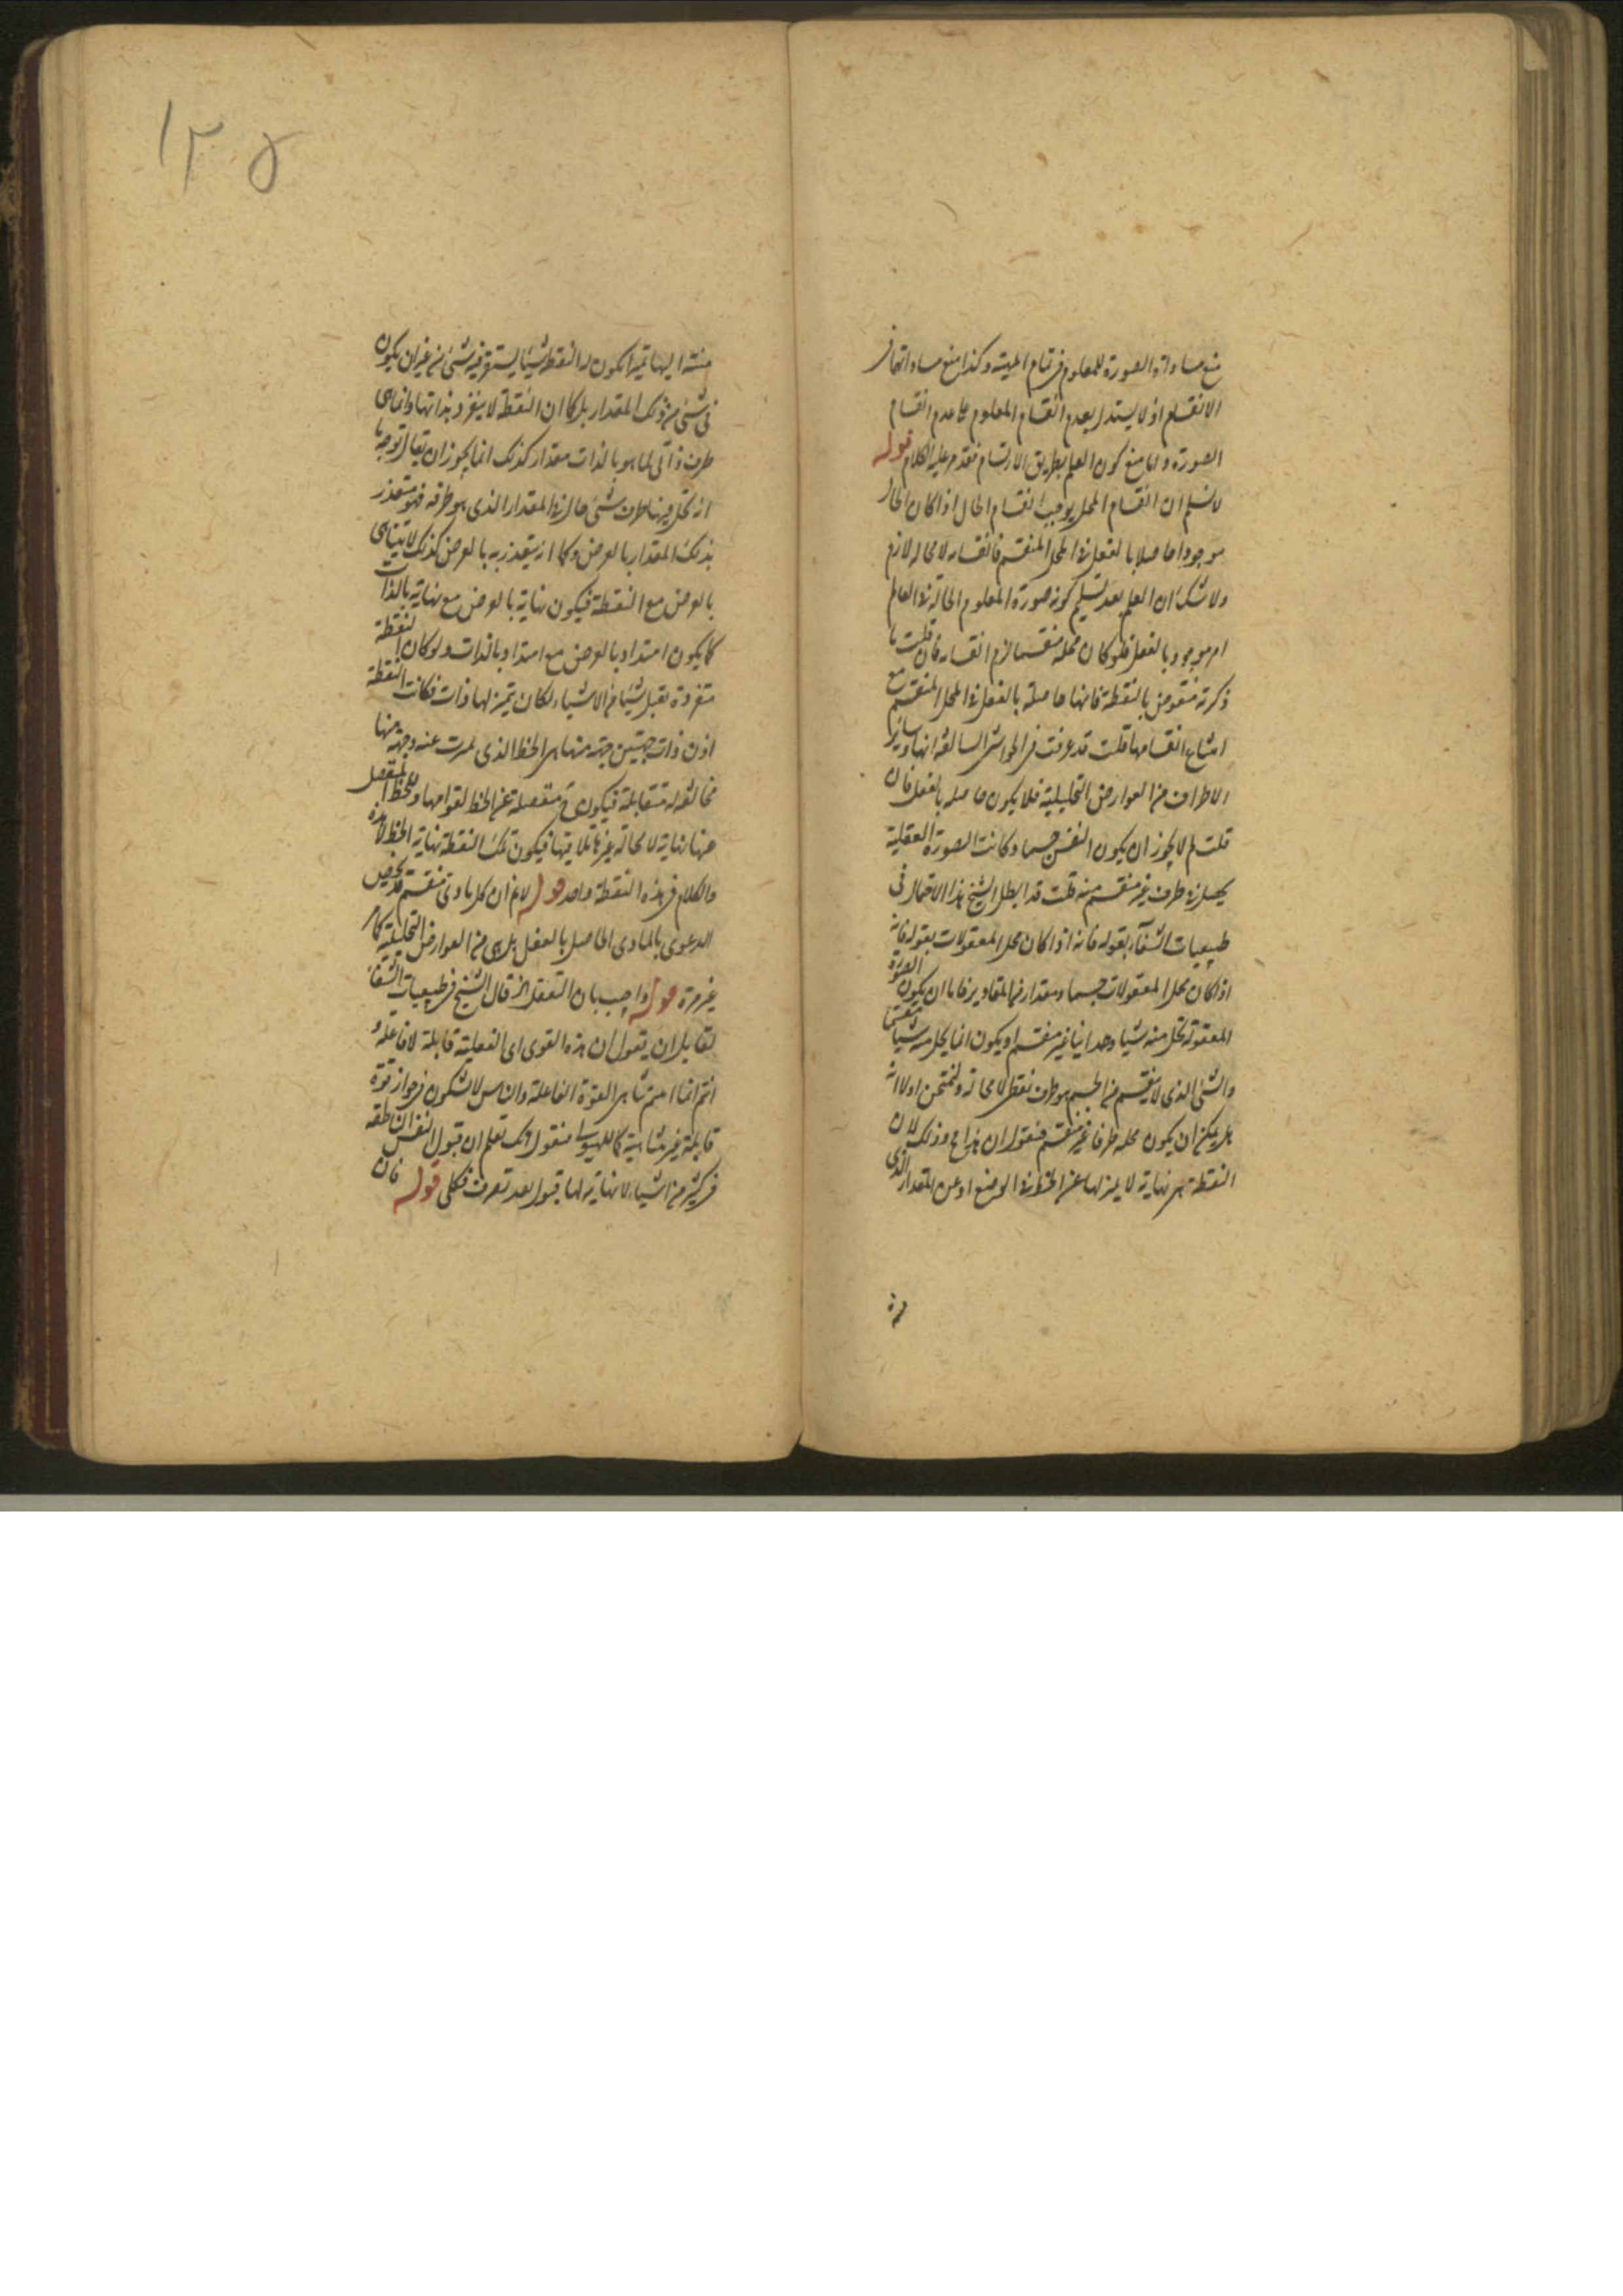 منع مساواة الصورة للمعلوم فى تمام المهية وكذا منع مساواتها فى
الانقسام اذ لا يستدل بعدم انقسام المعلوم على عدم انقسام
الصورة واما منع كون العلم بطريق الارتسام فقد مر عليه الكلام قوله
لا نسلم ان انقسام المحل يوجب انقسام الحال اذا كان الحال
موجودا حاصلا بالفعل فى المحل المنقسم فانقسامه لا محاله لازم
ولا شك ان العلم بعد تسليم كونه صورة المعلوم الحالة فى العالم
امر موجود بالفعل فلو كان محله منقسما لزم انقسامه فان قلت ما
ذكرته منقوض بالنقطة فانها حاصلة بالفعل فى المحل المنقسم مع
امتناع انقسامها قلت قد عرفت فى الحواشى السالفة انها وسائر
الاطراف من العوارض التحليلية فلا يكون حاصله بالفعل فان
قلت لم لا يجوز ان يكون النفس جسما وكانت الصورة العقلية
يحل فى طرف غير منقسم منه قلت قد ابطل الشيخ هذا الاحتمال فى
طبيعيات الشفآء بقوله فانه اذا كان محل المعقولات بقوله فانه
اذا كان محل المعقولات جسما ومقدار من المقادير فاما ان يكون الصورة
المعقولة تحل منه شيئا وحدانيا غير منقسم او يكون انما يحل منه شيئا منقسما
والشئ الذى لا ينقسم من الجسم هو طرف نقطى لا محالة ولنمتحن اولا انه
هل يمكن ان يكون محله طرفا غير منقسم فنقول ان هذا مح وذلك لان
النقطة هى نهاية لا يميز لها عن الخط فى الوضع او عن المقدار الذى
منته اليها تميزا يكون له النقطة شيئا يستقر فيه شئ من غير ان يكون
فى شئ من ذلك المقدار بل كما ان النقطة لا ينفرد بذاتها وانما هى
طرف ذاتى لما هو بالذات مقدار كذلك انما يجوز ان يقال بوجه ما
انه تحل فيها طرف شئ حال فى المقدار الذى هو طرفه فهو متقدر
بذلك المقدار بالعرض وكما انه يتقدر به بالعرض كذلك لا يتناهى
بالعرض مع النقطة فيكون نهاية بالعرض مع نهاية بالذات
كما يكون امتداد بالعرض مع امتداد بالذات ولو كان النقطة
منفردة يقبل شيئا من الاشياء لكان يتميز لها ذات فكانت النقطة
اذن ذات جهتين جهة منها يلى الخط الذى تميزت عنه وجهة منها
مخالفة له مقابلة فيكون ح منفصلة عن الخط لقوامها وللخط المنفصل
عنها نهاية لا محالة غيرها تلاقيها فيكون تلك النقطة نهاية الخط لا هذه
والكلام فى هذه النقطة واحد قوله لا نم ان كل مادى منقسم قد تخصص
الدعوى بالمادى الحاصل بالفعل بل هى من العوارض التحليلية كما مر
غير مرة قوله واجيب بان التعقل الخ قال الشيخ فى طبيعيات الشفا
لقايل ان يقول ان هذه القوى اى العقلية قابلة لا فاعلة و
انتم انما اثبتم تناهى القوة الفاعلة والناس لا يشكون فى جواز قوة
قابلة غير متناهية كما للهيولى فنقول انك تعلم ان قبول النفس الناطقة
فى كثير من اشياء لا نهاية لها قبول بعد تصرف فعلى قوله فان